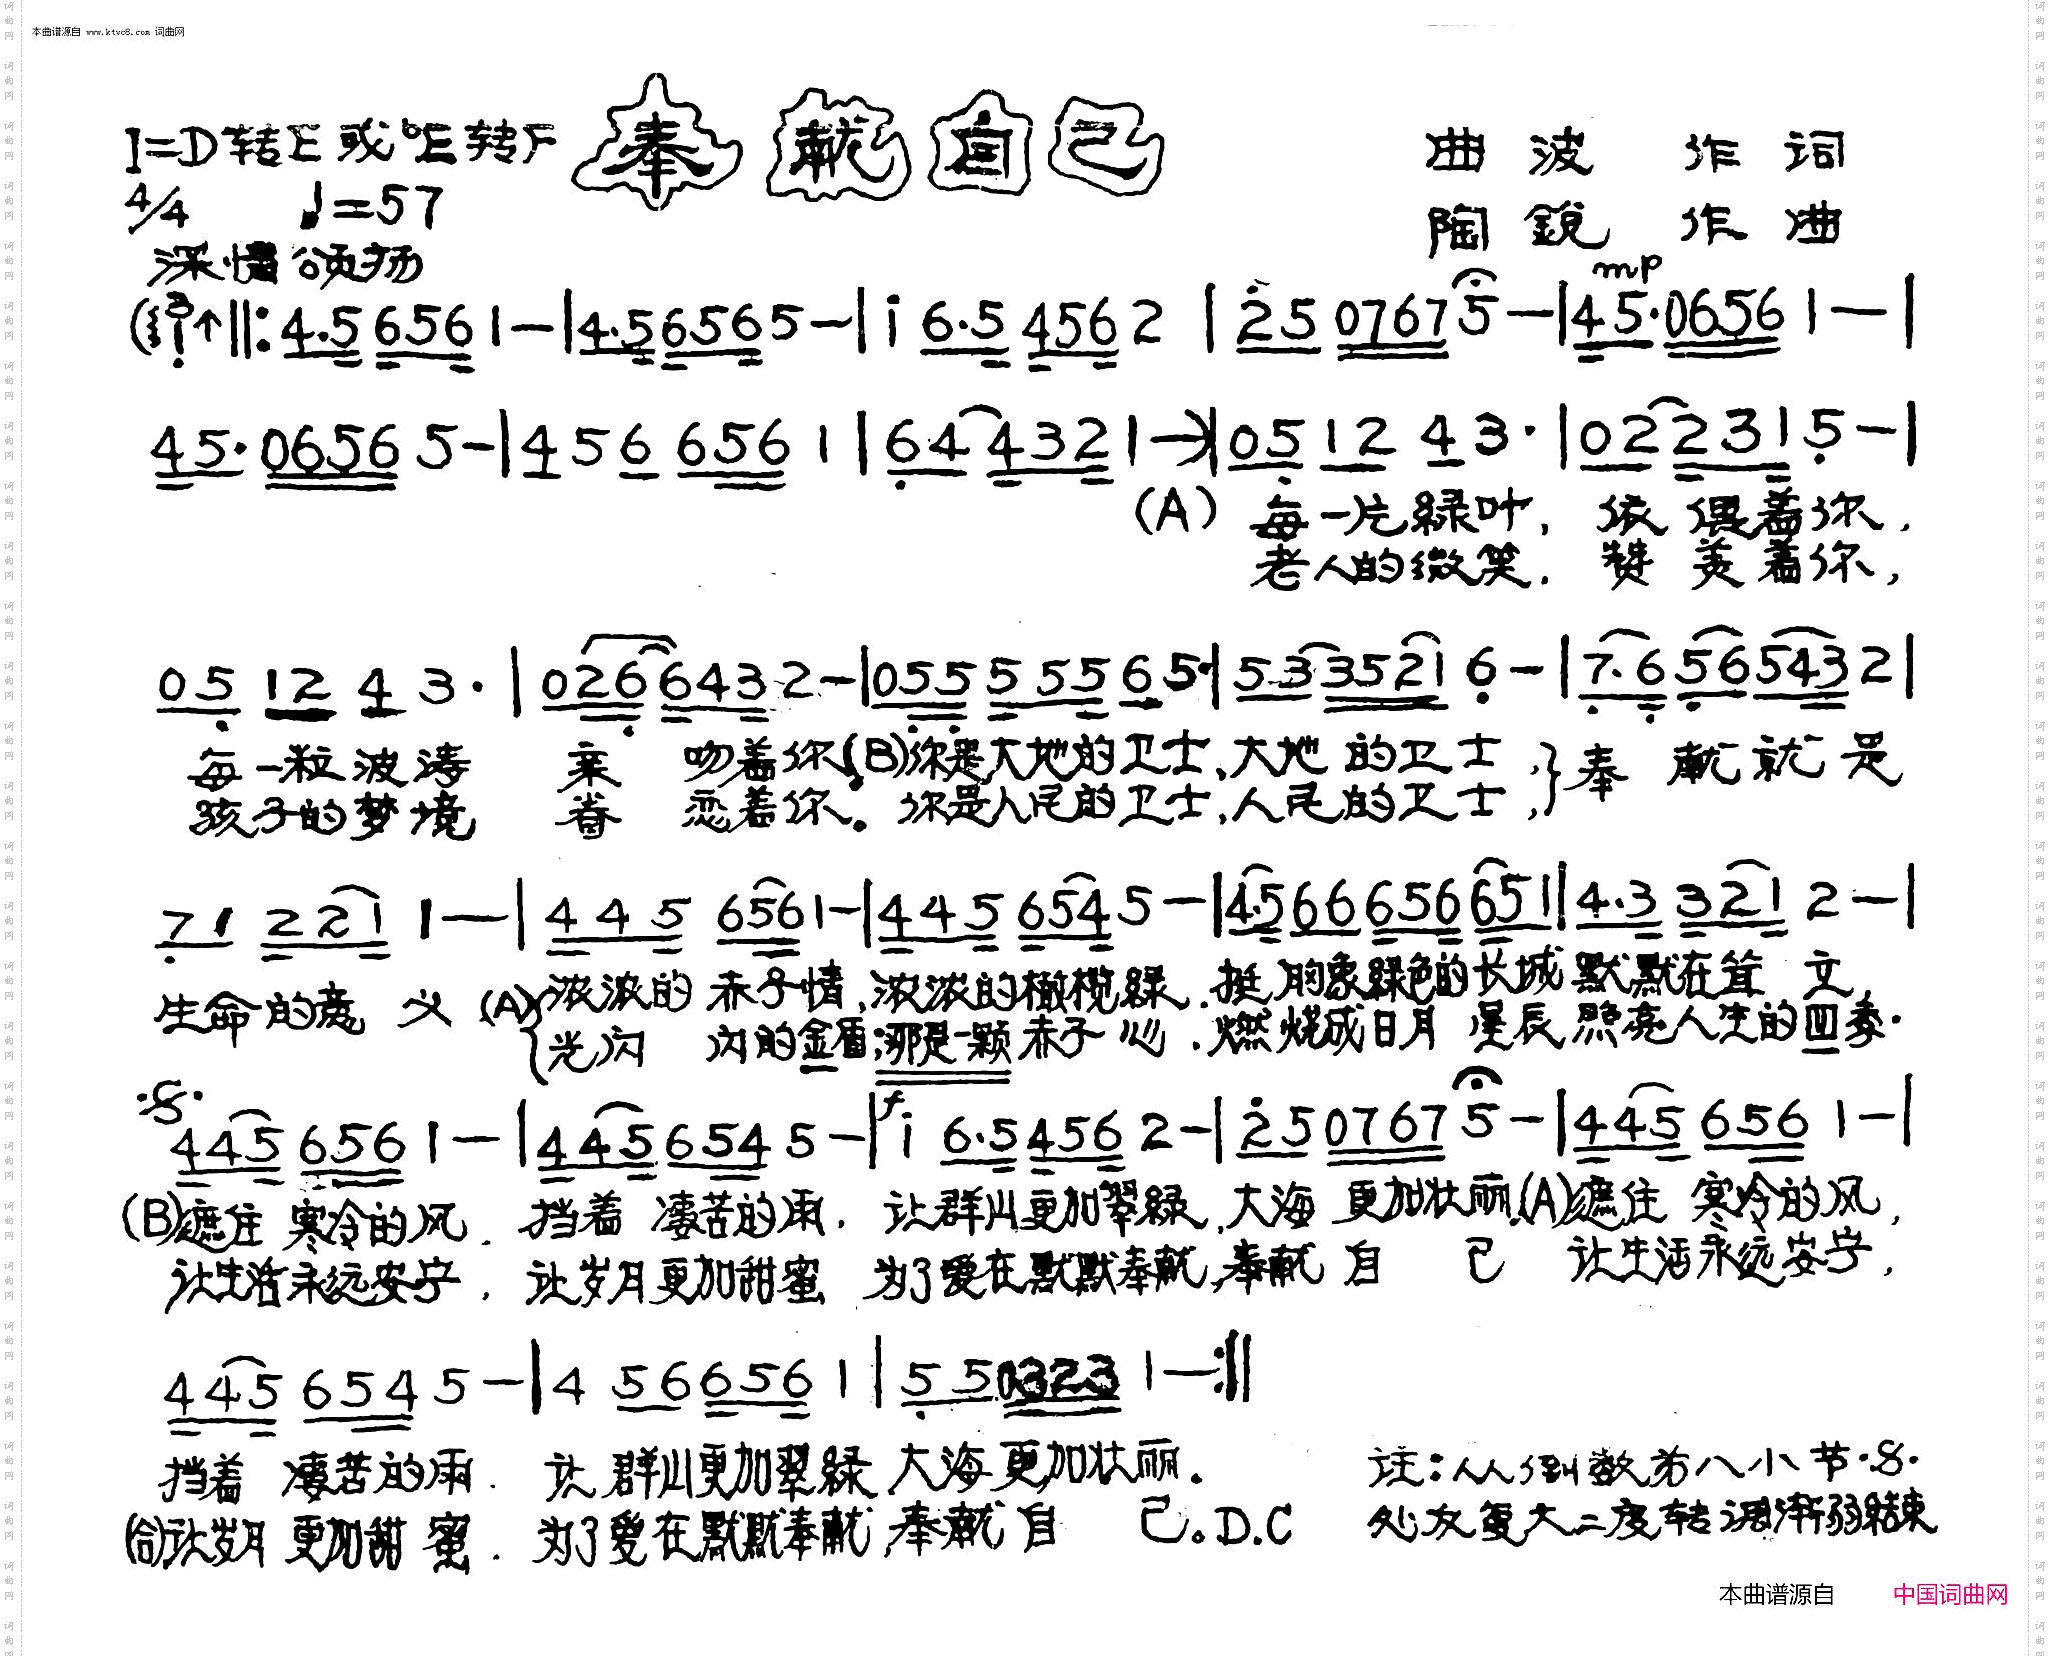 本曲谱源自 www.ktvc8.com 词曲网
奉献自己
1=D转E或♭E转F
4/4 ♩=57
深情 颂扬
曲波 作词
陶鏡 作曲
mp
4·5 656 1— | 4·5 656 5— | i 6·5 456 2 | 25 0767 5— | 45·0656 1— |
45·0656 5— | 4 5 6 656 1 | 64 432 1—) | 05 12 4 3· | 02 231 5— |
(A) 每一片緑叶, 依偎着你,
老人的微笑. 赞美着你,
05 12 4 3· | 026 643 2— | 055 555 6 5· | 53 3521 6— | 7·6 56 543 2 |
每一粒波涛 亲吻着你(B)你是大地的卫士,大地的卫士,}奉献就是
孩子的梦境 眷恋着你。你是人民的卫士,人民的卫士,
71 221 1— | 445 656 1— | 445 654 5— | 4·5 66 656 651 | 4·3 321 2— |
生命的意义 (A){浓浓的赤子情,浓浓的橄榄緑.挺胸象緑色的长城默默在耸立,
光闪闪的金盾;那是一颗赤子心.燃烧成日月星辰照亮人生的四季.
445 656 1— | 445 654 5— | f i 6·5 456 2— | 25 0767 5— | 445 656 1— |
(B)遮住寒冷的风. 挡着凄苦的雨. 让群山更加翠緑,大海更加壮丽.(A)遮住寒冷的风,
让生活永远安宁, 让岁月更加甜蜜 为了爱在默默奉献,奉献自己 让生活永远安宁,
445 654 5— | 4 56 656 1 | 5 5 0323 1— :||
挡着凄苦的雨. 让群山更加翠緑 大海更加壮丽.
(合)让岁月更加甜蜜. 为了爱在默默奉献,奉献自己。D.C
注:从倒数第八小节·S·
处反复大二度转调渐弱结束
本曲谱源自 中国词曲网